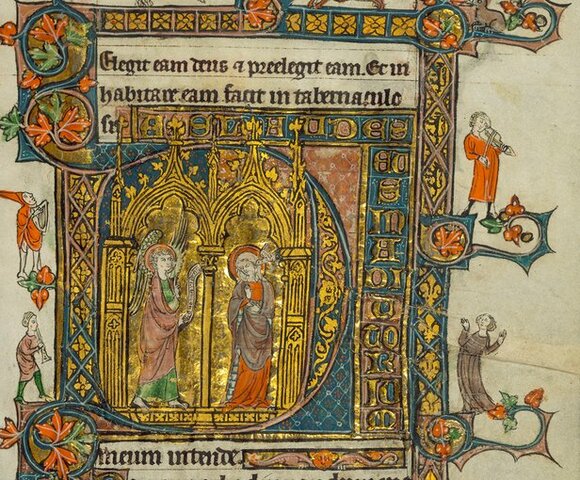 Elegit eam deus ⁊ preelegit eam. Et in
habitare eam facit in tabernaculo
su AD LAUDES
DEUS IN ADIUTORIUM
meum intende.